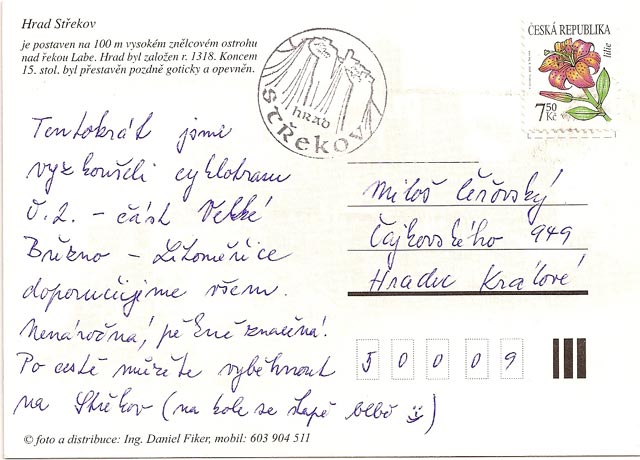 Hrad Střekov
je postaven na 100 m vysokém znělcovém ostrohu
nad řekou Labe. Hrad byl založen r. 1318. Koncem
15. stol. byl přestavěn pozdně goticky a opevněn.
hrad
STŘekov
ČESKÁ REPUBLIKA
lilie
7,50
Kč
Tentokrát jsme
vyzkoušeli cyklotrasu
č. 2. - část Velké
Březno - Litoměřice
doporučujeme všem.
Nenáročná, pěkně značená!
Po cestě můžete vyběhnout
na Střekov (na kole se šlapě blbě)
Miloš
Čajkovského 949
Hradec Králové
5 0 0 0 9
© foto a distribuce: Ing. Daniel Fiker, mobil: 603 904 511